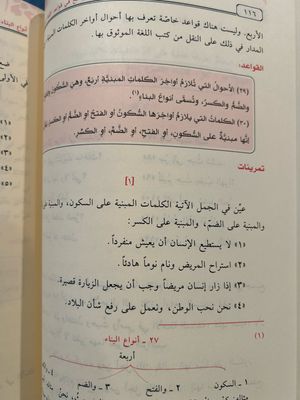 ١١٦
الأربع. وليست هناك قواعد خاصّة تعرف بها أحوال أواخر الكلمات المبنية
المدار في ذلك على النقل من كتب اللغة الموثوق بها.
القواعد:
(٢٩) الأَحوالُ التي تُلازِمُ أواخِرَ الكلماتِ المبنيَّةِ أربَعٌ، وهي السُّكونُ
والضَّمُّ والكسرُ، وتُسمَّى أنواعَ البناءِ (١).
(٣٠) الكلماتُ التي يلازِمُ أواخِرَها السُّكونُ أو الفتحُ أو الضَّمُّ أو الكسرُ
إنَّها مبنيَّةٌ على السُّكونِ، أو الفتحِ، أو الضَّمِّ، أو الكسْرِ.
تمرينات
[١]
عيّن في الجمل الآتية الكلمات المبنية على السكون، والمبنية
والمبنية على الضمّ، والمبنية على الكسر:
«١» لا يستطيع الإنسان أن يعيش منفرداً.
«٢» استراح المريض ونام نوماً هادئاً.
«٣» إذا زار إنسان مريضاً وجب أن يجعل الزيارة قصيرة.
«٤» نحن نحب الوطن، ونعمل على رفع شأن البلاد.
(١)
٢٧ - أنواع البناء
أربعة
١ - السكون ٢ - والفتح ٣ - والضم